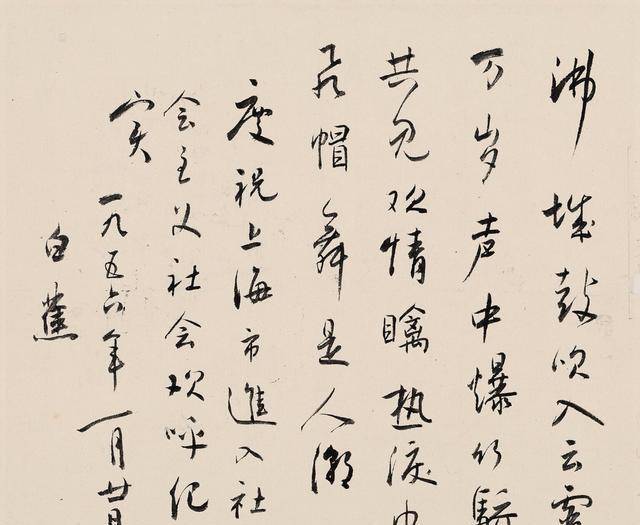 沸城鼓吹入云霄
万岁声中爆竹
共见欢情瞩热泪
飞帽舞是人潮
庆祝上海市進入社
会主义社会欢呼纪
实
一九五六年一月廿日
白蕉